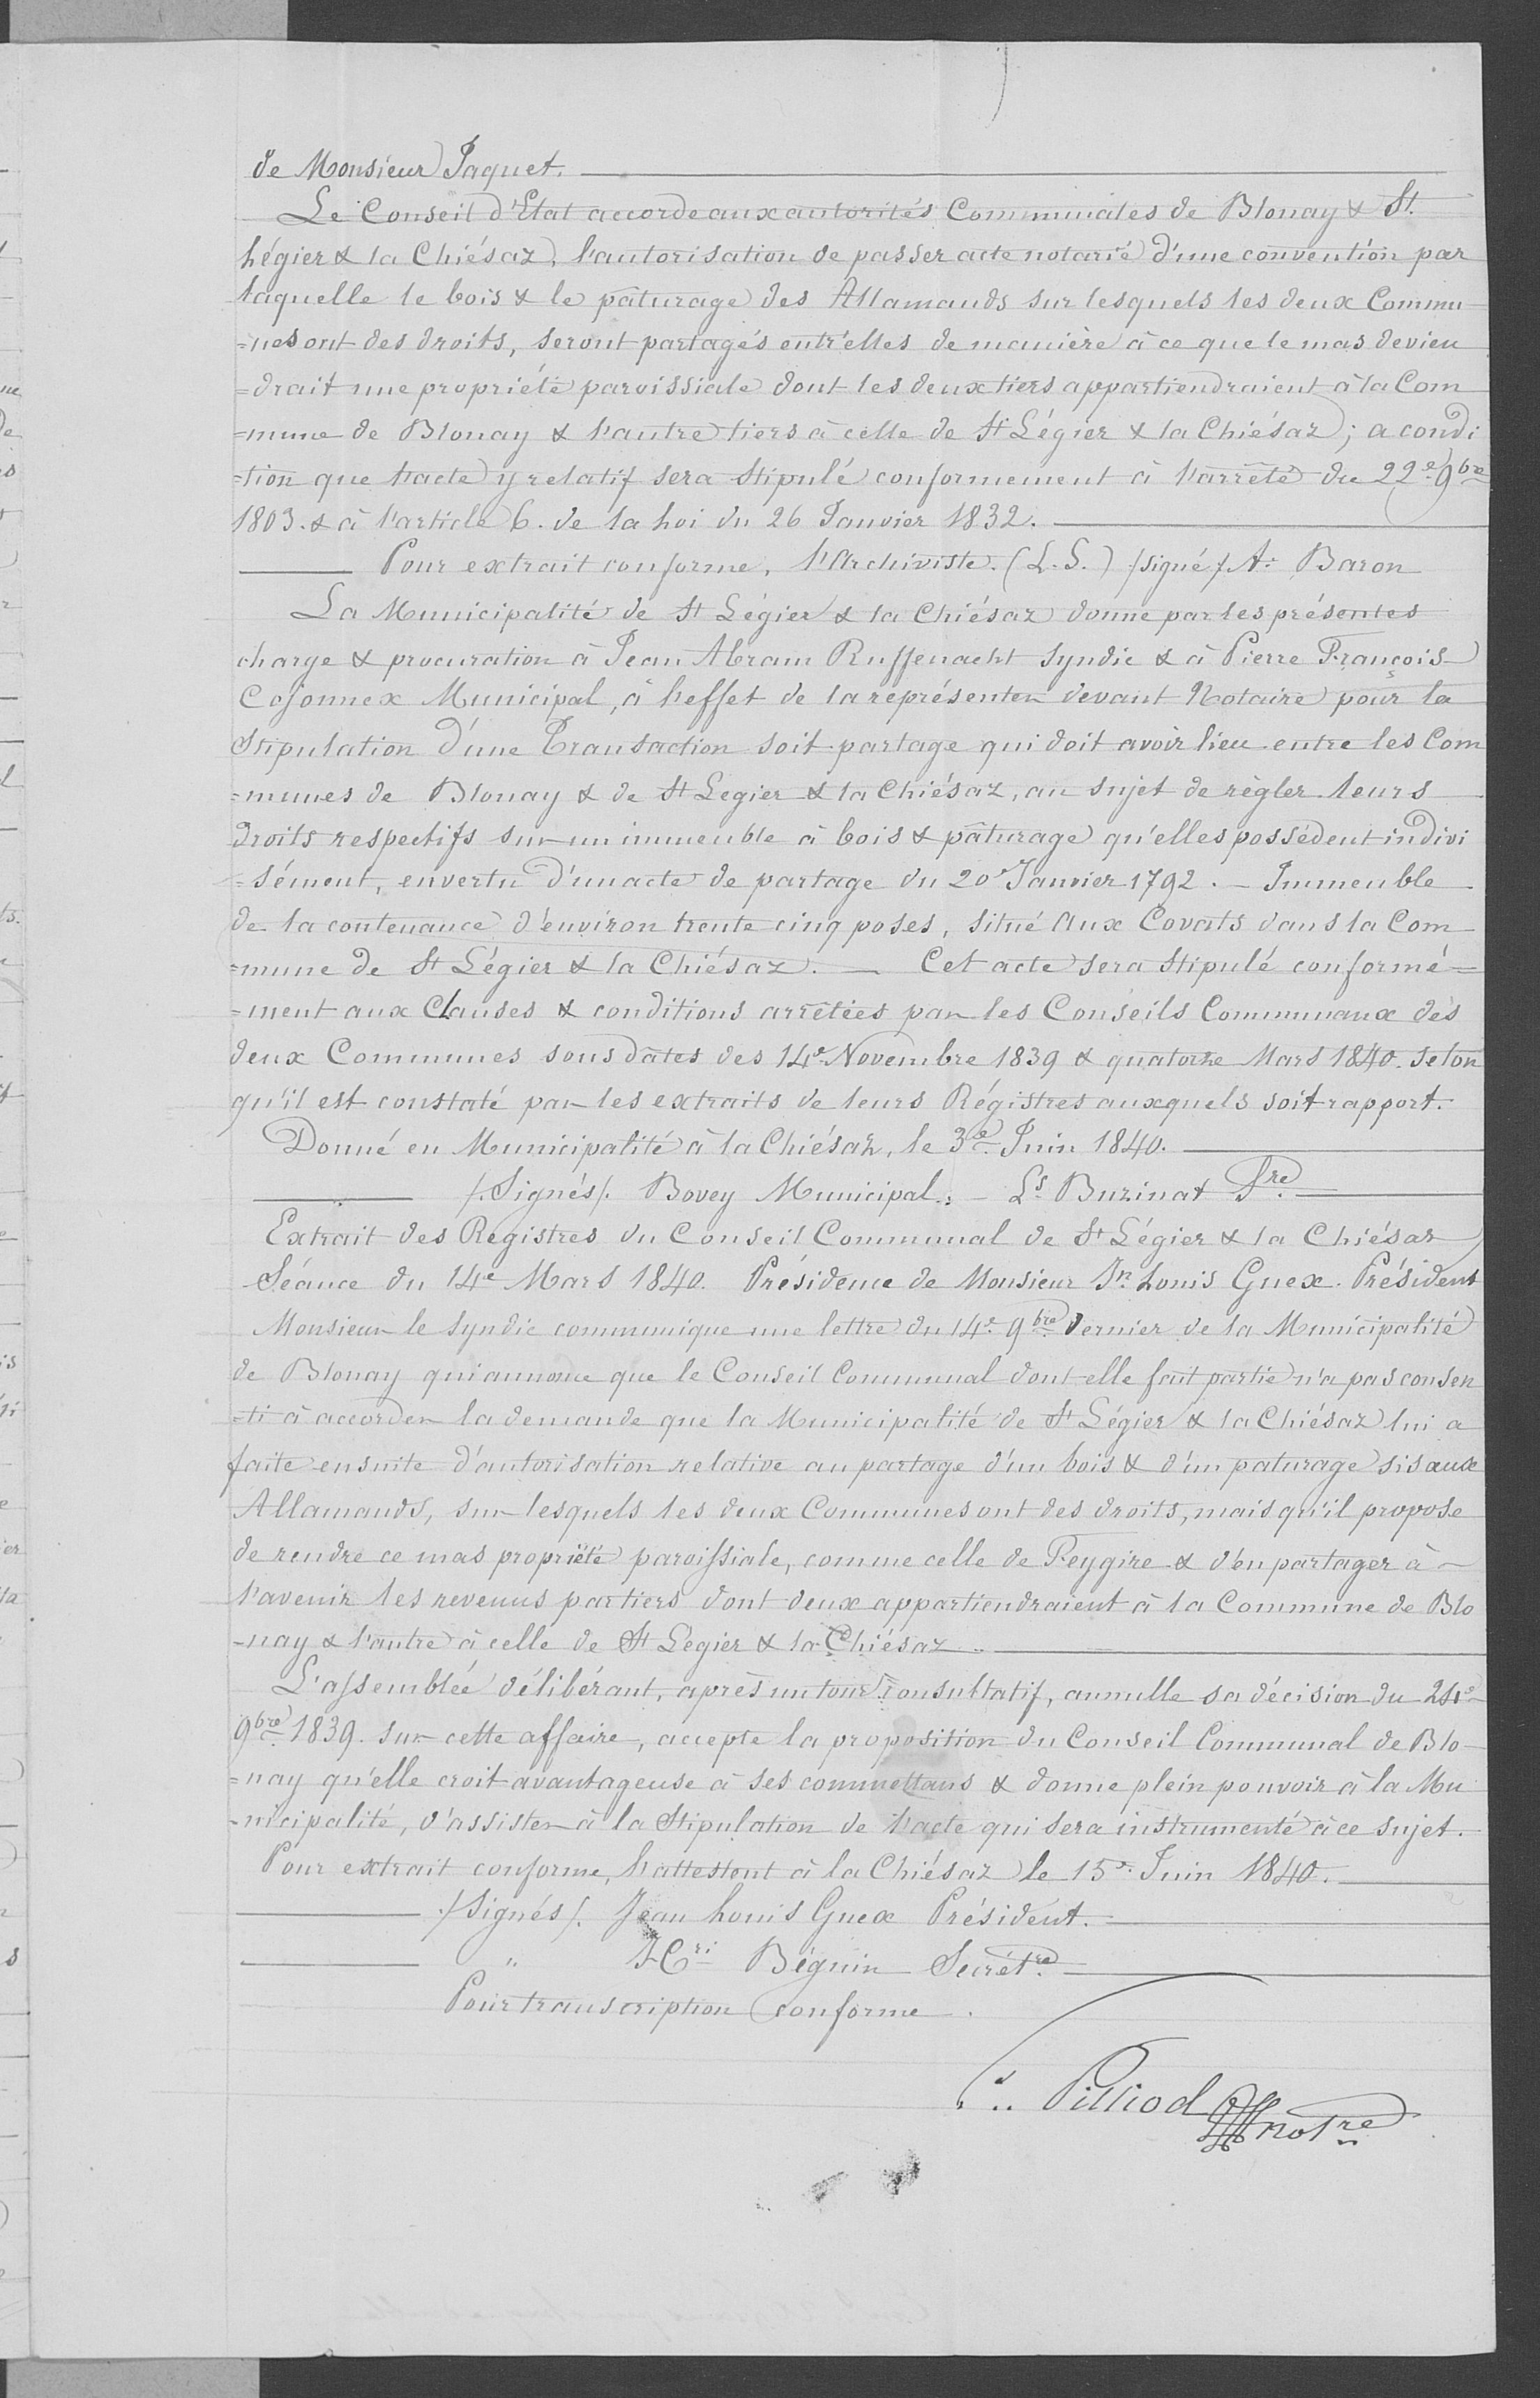 de Monsieur Jaquet.
Le Conseil d'Etat accorde aux autorités Communales de Blonay & St.
Légier & la Chiésaz, l'autorisation de passer acte notarié d'une convention par
laquelle le bois & le pâturage des Allamands sur lesquels les deux Commu-
=nes ont des droits, seront partagés entr'elles de manière à ce que le mas devien
=drait une propriété paroissiale dont les deux tiers appartiendraient à la Com
=mune de Blonay & l'autre tiers à celle de St Légier & la Chiésaz; a condi
=tion que l'acte y relatif sera stipulé conformement à l'arrêté du 22e 9bre
1803. & à l'article 6. de la Loi du 26 Janvier 1832.
Pour extrait conforme, l'Archiviste. (L. S.) /signé/ A: Baron
La Municipalité de St Légier & la Chiésaz donne par les présentes
charge & procuration à Jean Abram Ruffenacht syndic & à Pierre François
Cojonnex Municipal, à l'effet de la représenter devant Notaire pour la
Stipulation d'une Transaction soit partage qui doit avoir lieu entre les Com
=munes de Blonay & de St Legier & la Chiésaz, au sujet de règler leurs
droits respectifs sur un immeuble à bois & pâturage qu'elles possédent indivi
=sément, en vertu d'un acte de partage du 20e Janvier 1792. — Immeuble
de la contenance d'environ trente cinq poses, situé aux Covats dans la Com
=mune de St Légier & la Chiésaz. — Cet acte sera stipulé conformé=
=ment aux Clauses & conditions arrêtées par les Conseils Communaux des
deux Communes sous dates des 14e Novembre 1839 & quatorze Mars 1840. selon
qu'il est constaté par les extraits de leurs Régistres auxquels soit rapport.
Donné en Municipalité à la Chiésaz, le 3e Juin 1840.
/.Signés/. Bovey Municipal. — Ls Buzinat Sre
Extrait des Registres du Conseil Communal de St Légier & la Chiésaz
Séance du 14e Mars 1840. Présidence de Monsieur Jn Louis Guex. Président
Monsieur le Syndic communique une lettre du 14e 9bre dernier de la Municipalité
de Blonay qui annonce que le Conseil Communal dont elle fait partie n'a pas consen
=ti à accorder la demande que la Municipalité de St Légier & la Chiésaz lui a
faite ensuite d'autorisation relative au partage d'un bois & d'un paturage sis aux
Allamands, sur lesquels les deux Communes ont des droits, mais qu'il propose
de rendre ce mas propriété paroissiale, comme celle de Feygire & d'en partager à
l'avenir les revenus par tiers dont deux appartiendraient à la Commune de Blo
-nay & l'autre à celle de St Legier & la Chiésaz.
L'assemblée délibérant, après un tour consultatif, annulle sa décision du 24e
9bre 1839. sur cette affaire, accepte la proposition du Conseil Communal de Blo-
=nay qu'elle croit avantageuse à ses commettans & donne plein pouvoir à la Mu
-nicipalité, d'assister à la Stipulation de l'acte qui sera instrumenté à ce sujet.
Pour extrait conforme, l'attestent à la Chiésaz le 15e Juin 1840.
/Signés/. Jean Louis Guex Président.
" Béguin Secrétre
Pour transcription conforme.
Pilliod notre